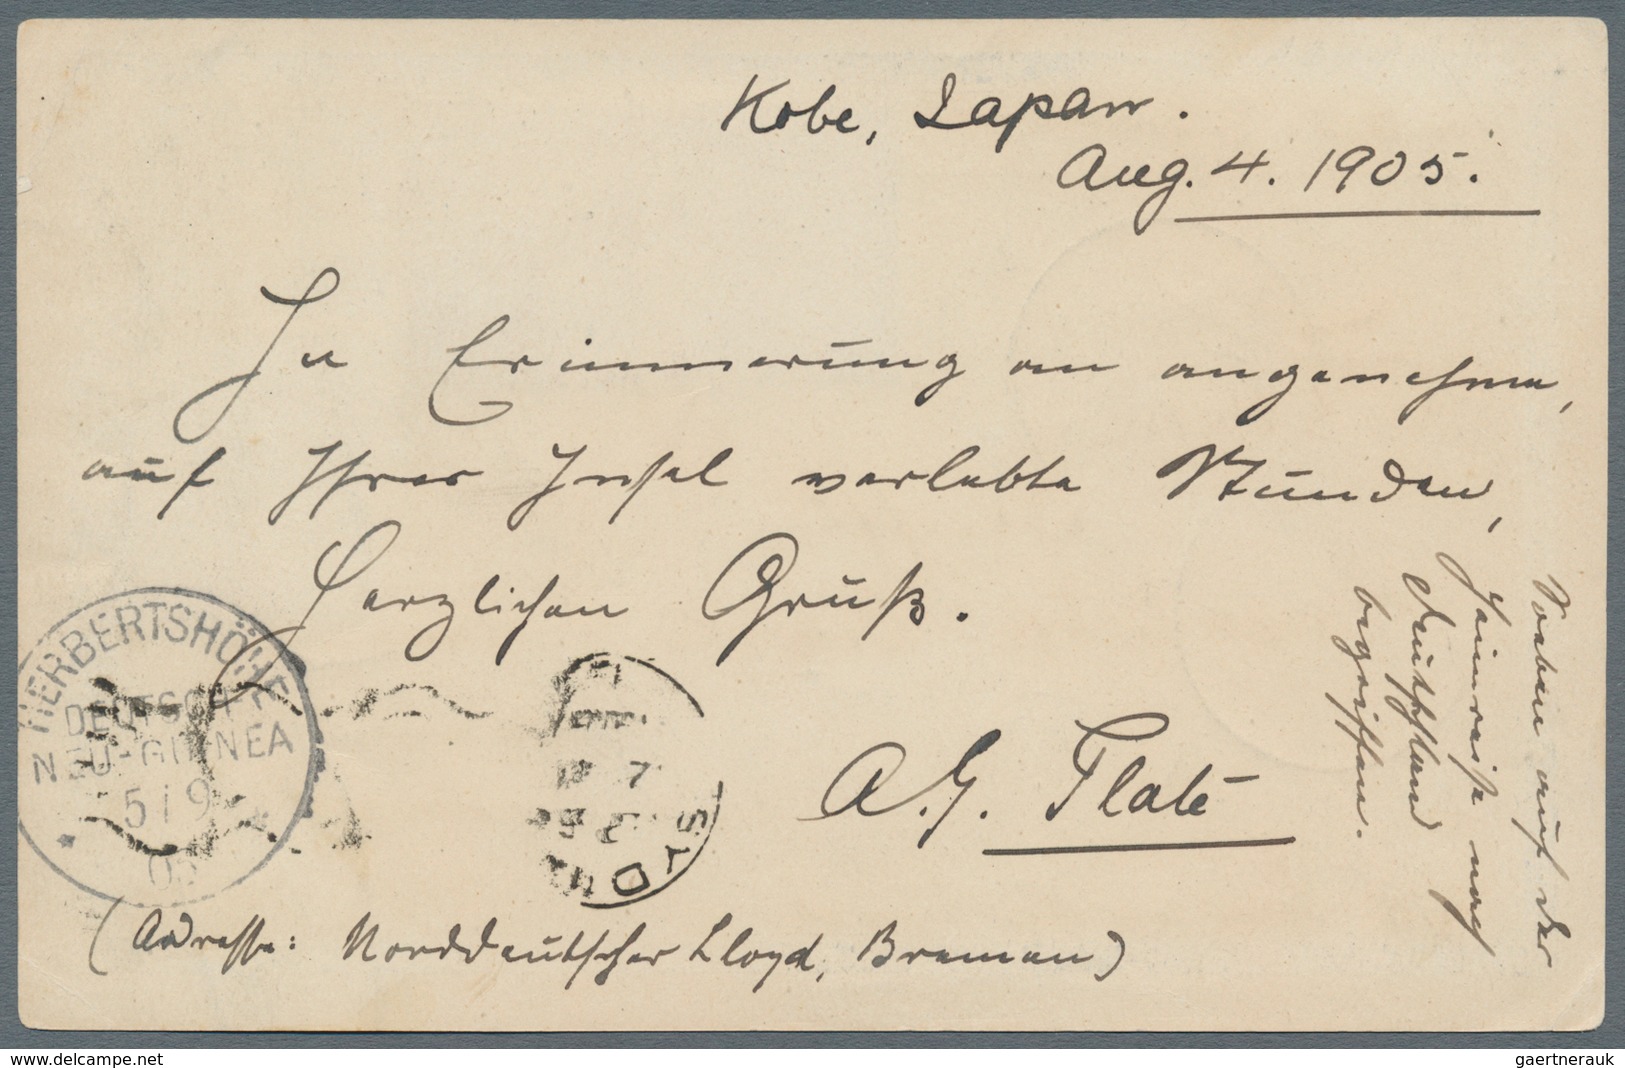 Kobe, Japan.
Aug. 4. 1905.
In Erinnerung an angenehme,
auf Ihrer Insel verlebte Stunden,
herzlichen Gruß.
A. G. Plate
(Adresse: Norddeutscher Lloyd, Bremen)
Soeben auf der
Heimreise nach
Deutschland
begriffen.
HERBERTSHÖHE
DEUTSCH-
NEU-GUINEA
5/9
05
SYDNEY
www.delcampe.net
gaertnerauk